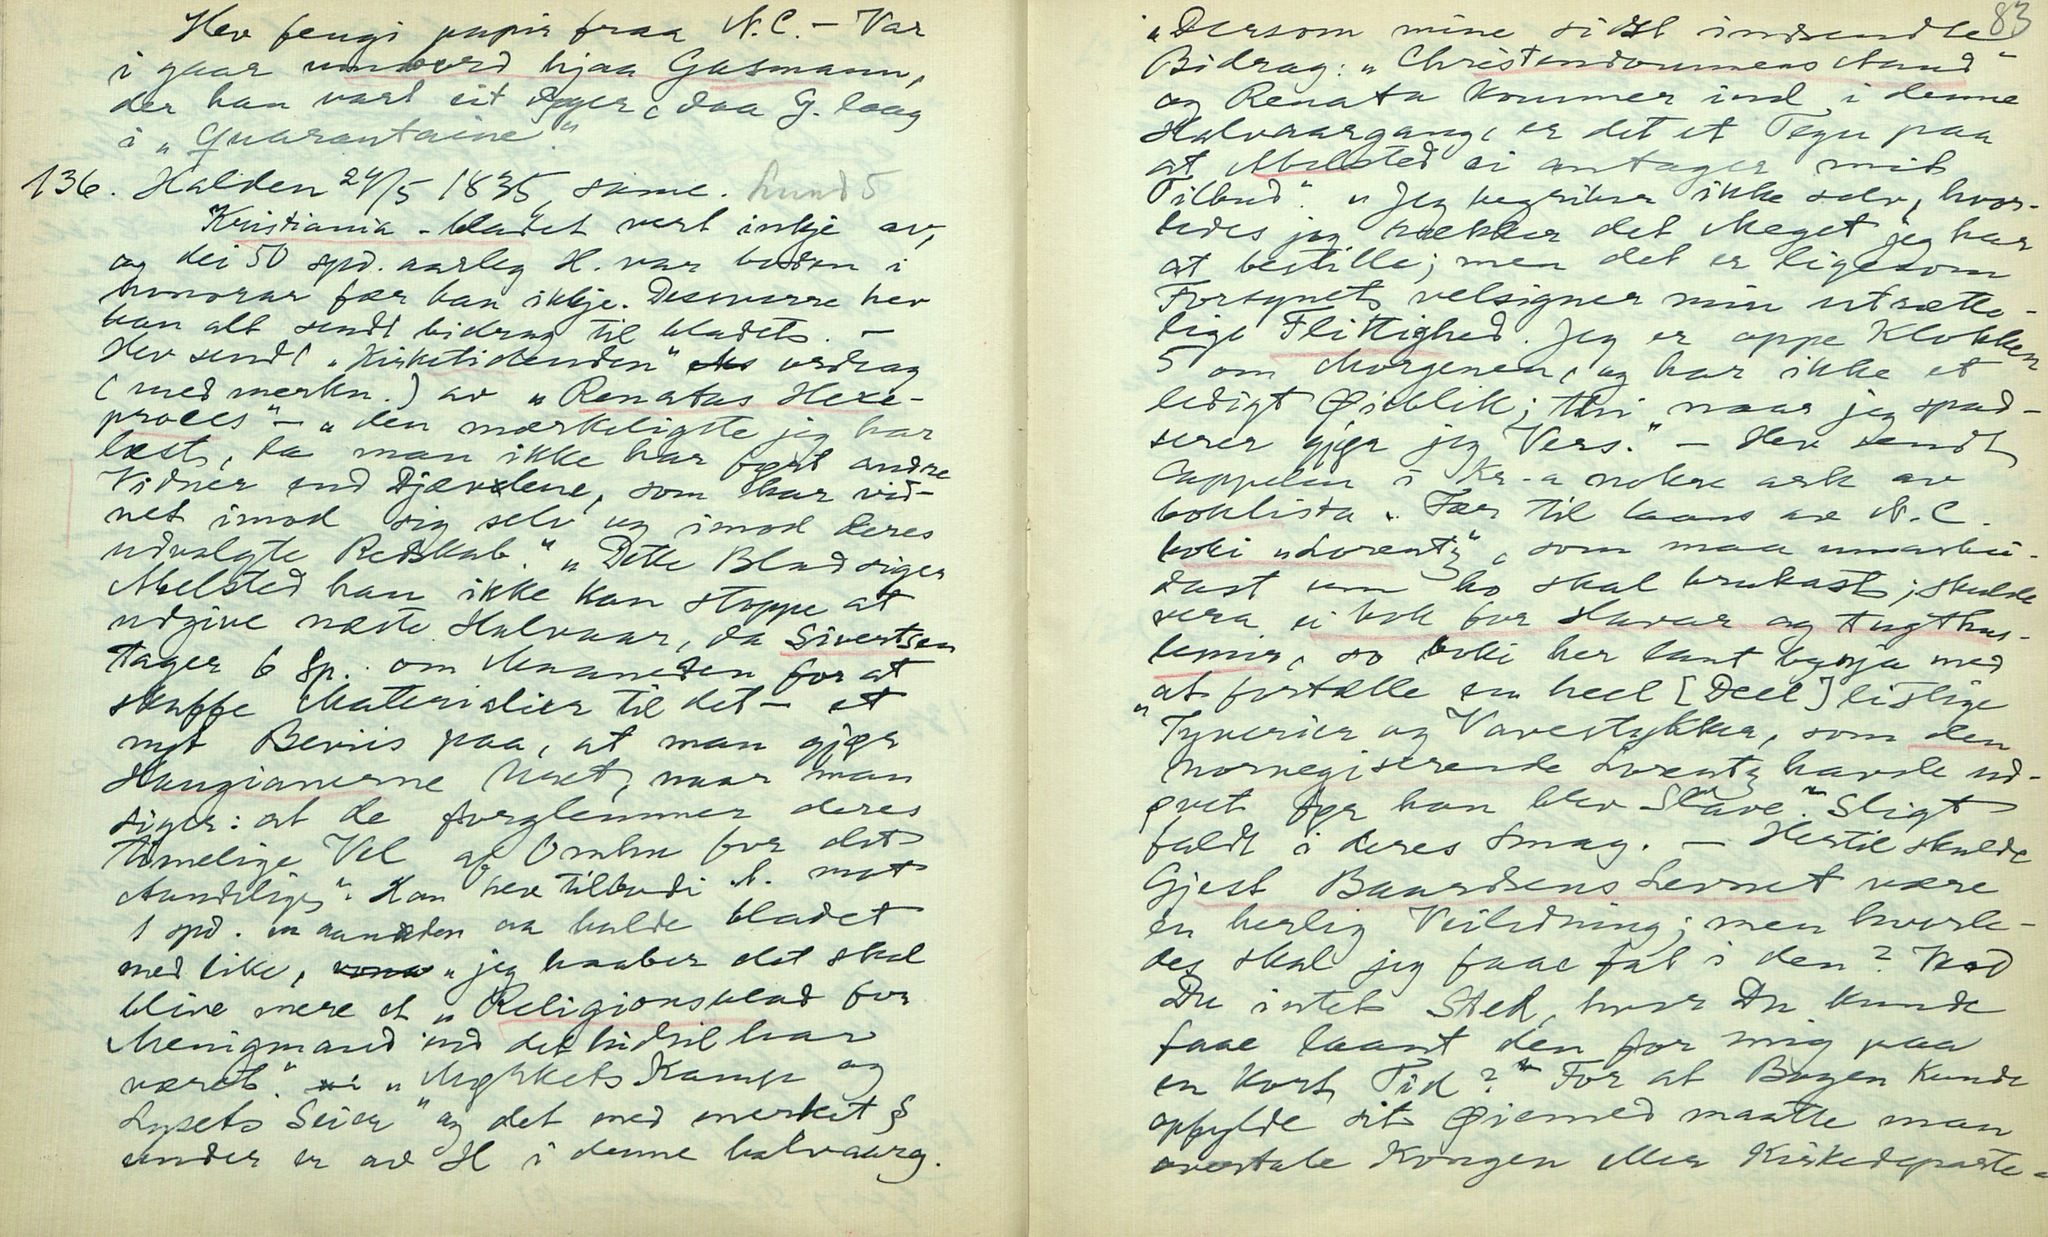 Hev fengi papir fraa N.C. – Var
i gaar hjaa Gasmann,
der han vard eit daa G. laag
i „Quarantaine".
136. Halden 24/5 1835, same. Lund 5
Kristiania-bladet vert inkje av,
og dei 50 spd. aarleg H. var boden i
honorar fær han ikkje. Desverre hev
han alt sendt bidrag til bladet. –
Hev sendt „Kirketidenden" utdrag
(med merkn.) av „Renatas Hexe-
proces" – „den mærkeligste jeg har
læst, da man ikke har ført andre
Vidner end Djævlene, som har vid-
net imod sig selv og imod deres
udvalgte Redskab." „Dette Blad siger
Melsted han ikke kan stoppe at
udgive næste Halvaar, da Sivertsen
tager 6 Sp. om Maaneden for at
skaffe Materialier til det – et
nyt Beviis paa, at man gjør
Haugianerne Uret, naar man
siger: at de forglemmer deres
timelige Vel af Omhu for det
Aandelige". Han hev tilbodi M. mot
1 spd. um maanden aa halde bladet
med like, „jeg haaber det skal
blive mere et „Religionsblad for
Menigmand end det hidtil har
været." „Mørkets Kamp og
Lysets Seier" og det med merket §
under er av H i denne halvaarg.
83
„Dersom mine sidst indsendte
Bidrag: „Christendommens Aand"
og Renata kommer ind i denne
Halvaargang, er det et Tegn paa
at Melsted ei antager mit
Tilbud." „Jeg begriber ikke selv, hvor-
ledes jeg rækker det Meget jeg har
at bestille; men det er ligesom
Forsynet velsigner min utrætte-
lige Flittighed. Jeg er oppe Klokken
5 om Morgenen, og har ikke et
ledigt Øieblik; thi naar jeg spad-
serer gjør jeg Vers." – Hev sendt
Cappelen i Kr-a nokre ark av
boklista. Fær til laans av N.C.
boki „Lorentz", som maa umarbei-
dast um ho skal brukast; skulde
vera ei bok for Slavar og tugthus-
lemir, so boki her lant byrja med
„at fortælle en heel [Deel] listige
Tyverier og Vovestykker, som den
norvegiserende Lorentz havde ud-
øvet før han blev Slave." Sligt
faldt i deres Smag. – Hertil skulde
Gjest Baardsens Levnet være
en herlig Veiledning; men hvorle-
des skal jeg faae fat i den? Veed
Du intet Sted, hvor Du kunde
faae laant den for mig paa
en kort Tid?" For at Bogen kunde
opfylde sit Øiemed maatte man
overtale Kongen eller Kirkedeparte-